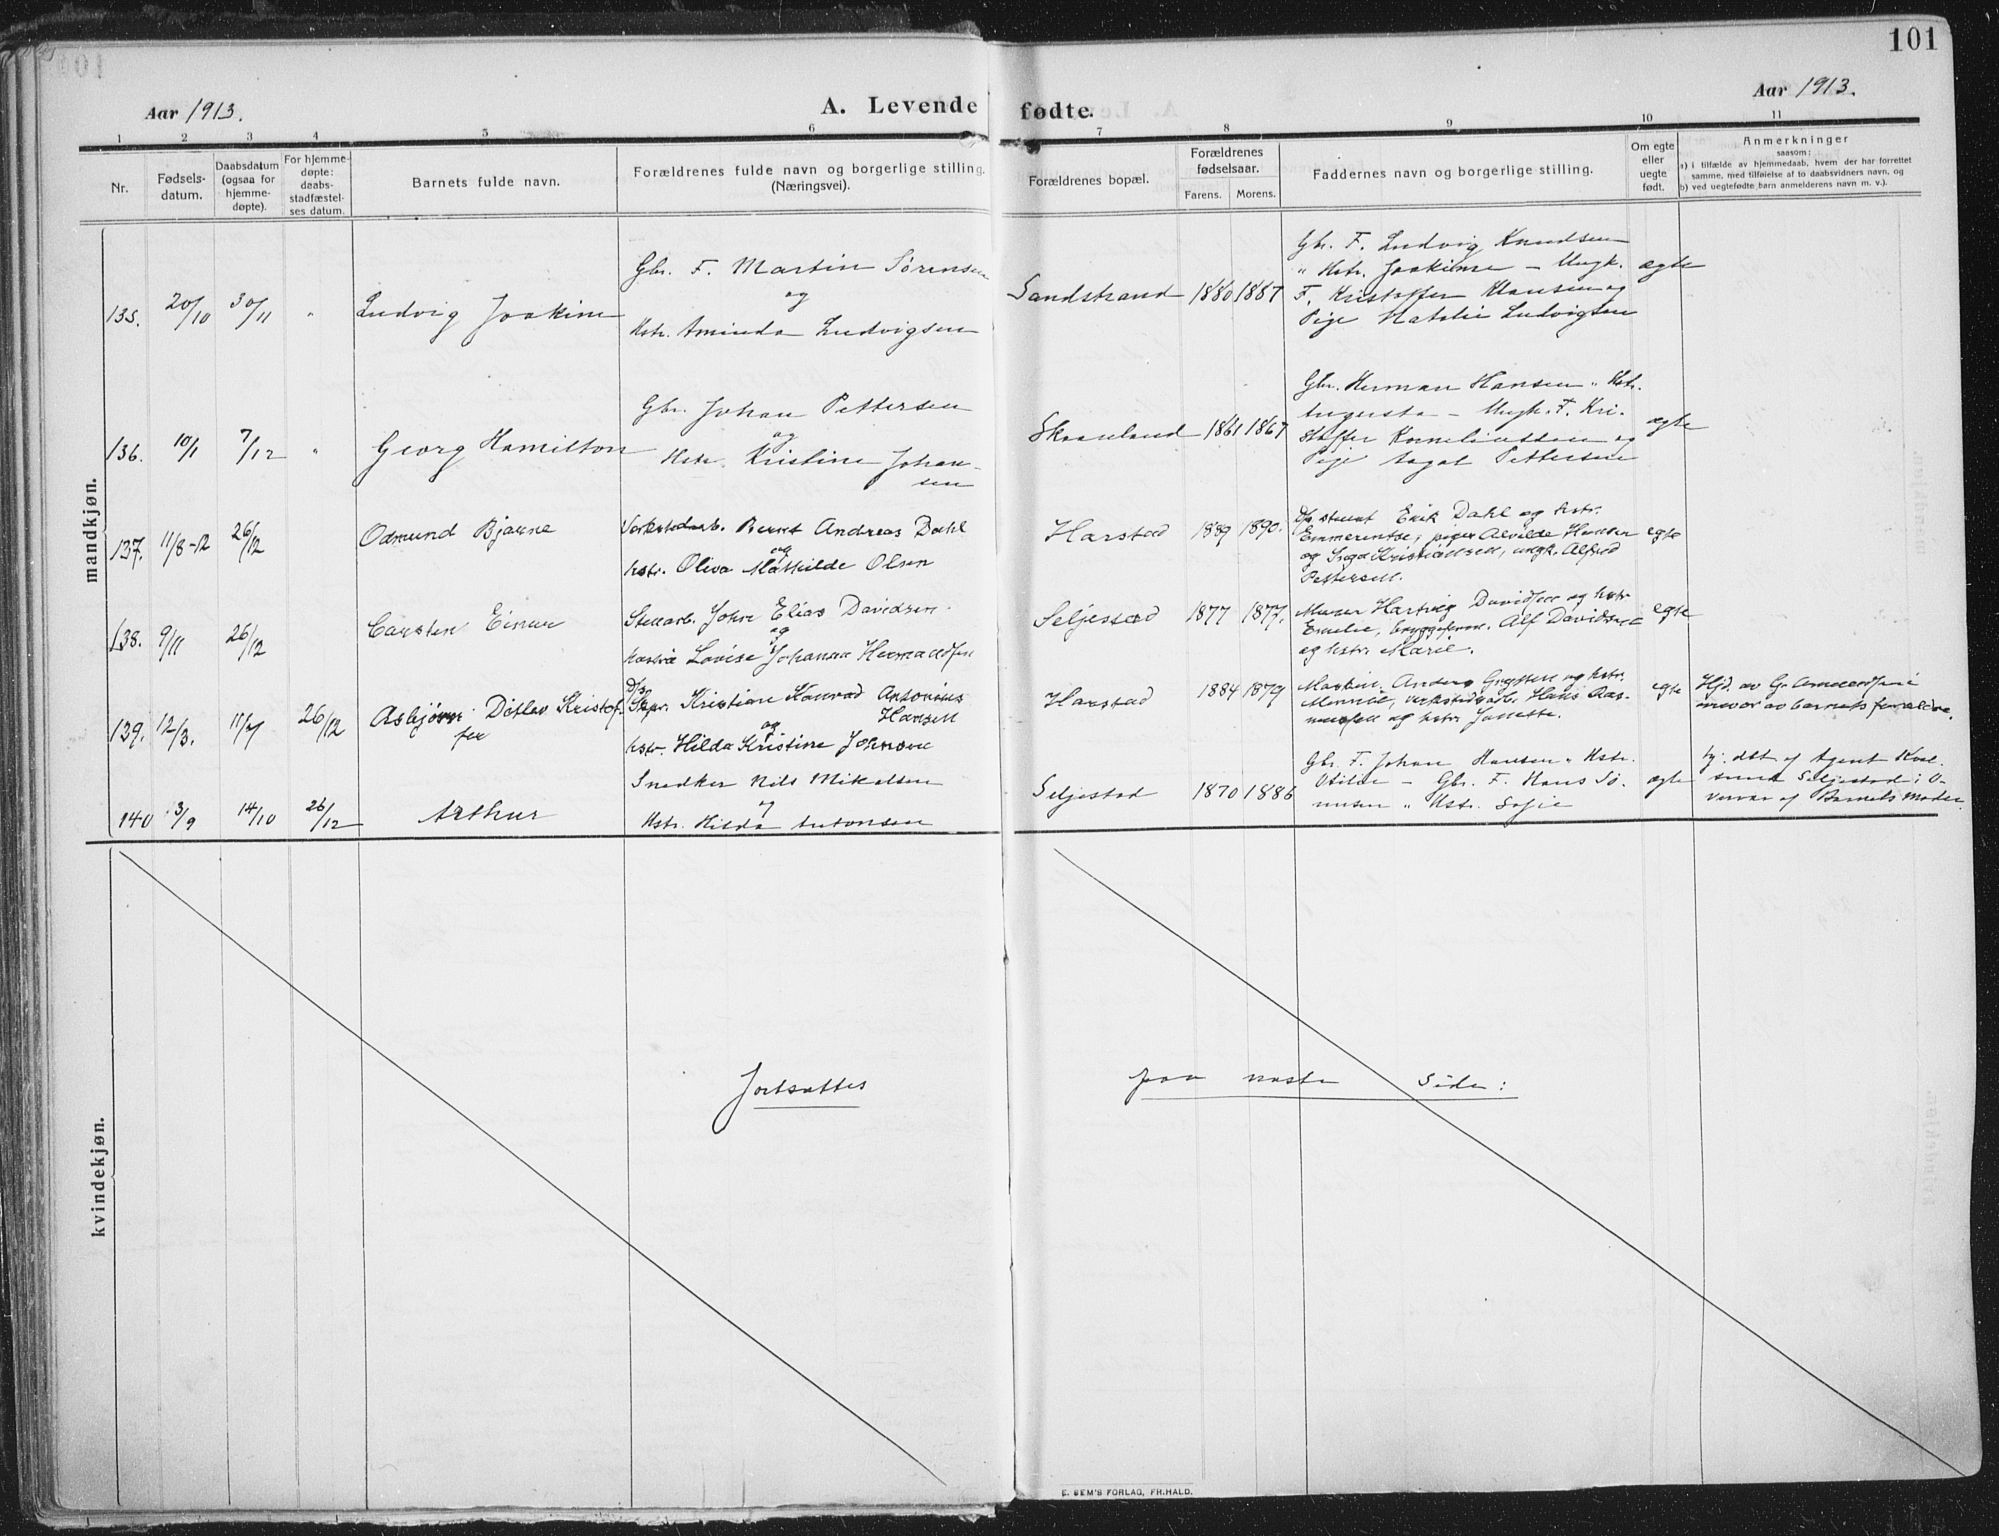 101
Aar 1913.
A. Levende fødte.
Aar 1913.
1 2 3 4 5 6 7 8 9 10 11
Nr.
Fødsels-
datum.
Daabsdatum
(ogsaa for
hjemme-
døpte).
For hjemme-
døpte:
daabs-
stadfæstel-
ses datum.
Barnets fulde navn.
Forældrenes fulde navn og borgerlige stilling.
(Næringsvei).
Forældrenes bopæl.
Forældrenes
fødselsaar.
Farens. Morens.
Faddernes navn og borgerlige stilling.
Om egte
eller
uegte
født.
Anmerkninger
saasom:
a) i tilfælde av hjemmedaab, hvem der har forrettet
samme, med tilføielse af to daabsvidners navn, og
b) ved uegtefødte barn anmelderens navn m. v.).
mandkjøn.
135. 20/10 30/11 "
Ludvig Joakim
Gbr. F. Martin Sørensen
og
Hstr. Aminda Ludvigsen
Sandstrand 1880 1887
Gbr. F. Ludvig Knudsen
" Hstr. Joakime - Ungk.
F. Kristoffer Klausen og
Pige Natalie Ludvigsen
ægte
136. 10/1 7/12 "
Georg Hamilton
Gbr. Johan Pettersen
og
Hstr. Kristine Johan-
sen
Skaanland 1861 1867
Gbr. Herman Hansen " Hstr.
Augusta - Ungk. F. Kri-
stoffer Korneliussen og
Pige Aagot Pettersen
ægte
137. 11/8-12 26/12
Odmund Bjarne
Verkstedarb. Bernt Andreas Dahl
og
hstr. Oliva Mathilde Olsen
Harstad 1889 1890.
Erik Dahl og hstr.
Emmerentse, piger Alvilde Hansen
og Inga Kristiansen, ungk. Alfred
Pettersen.
egte
138. 9/11 26/12
Carsten Einar
Stenarb. John Elias Davidsen
og
hustru Lovise Johanna Hermandsen
Seljestad 1877 1877.
Murer Hartvig Davidsen og hstr.
Emelie, bryggeform. Alf Davidsen
og hstr. Marie.
egte
139. 12/3. 11/7 26/12
Asbjørn Ditlev Kristof-
fer
D/s Skpr. Kristian Konrad Antonius
Hansen
og
hstr. Hilda Kristine Johnsen
Harstad 1884 1879
Maskin. Anders Gryssen og hstr.
Minnie, verkstedarb. Hans Ras-
mussen og hstr. Janette.
egte
Hjd. av
nærvær av barnets forældre.
140 3/9 14/10 26/12
Arthur
Snedker Nils Mikalsen
og
Hstr. Hilda Antonsen
Seljestad 1870 1886
Gbr. F. Johan Hansen " Hstr.
Otilde - Gbr. F. Hans Si-
monsen " Hstr. Sofie
ægte
hj. dbt af Agent Kval-
sund Seljestad i O-
vervær af Barnets Moder.
kvindekjøn.
Fortsættes paa næste Side:
E. SEM'S FORLAG, FR.HALD.